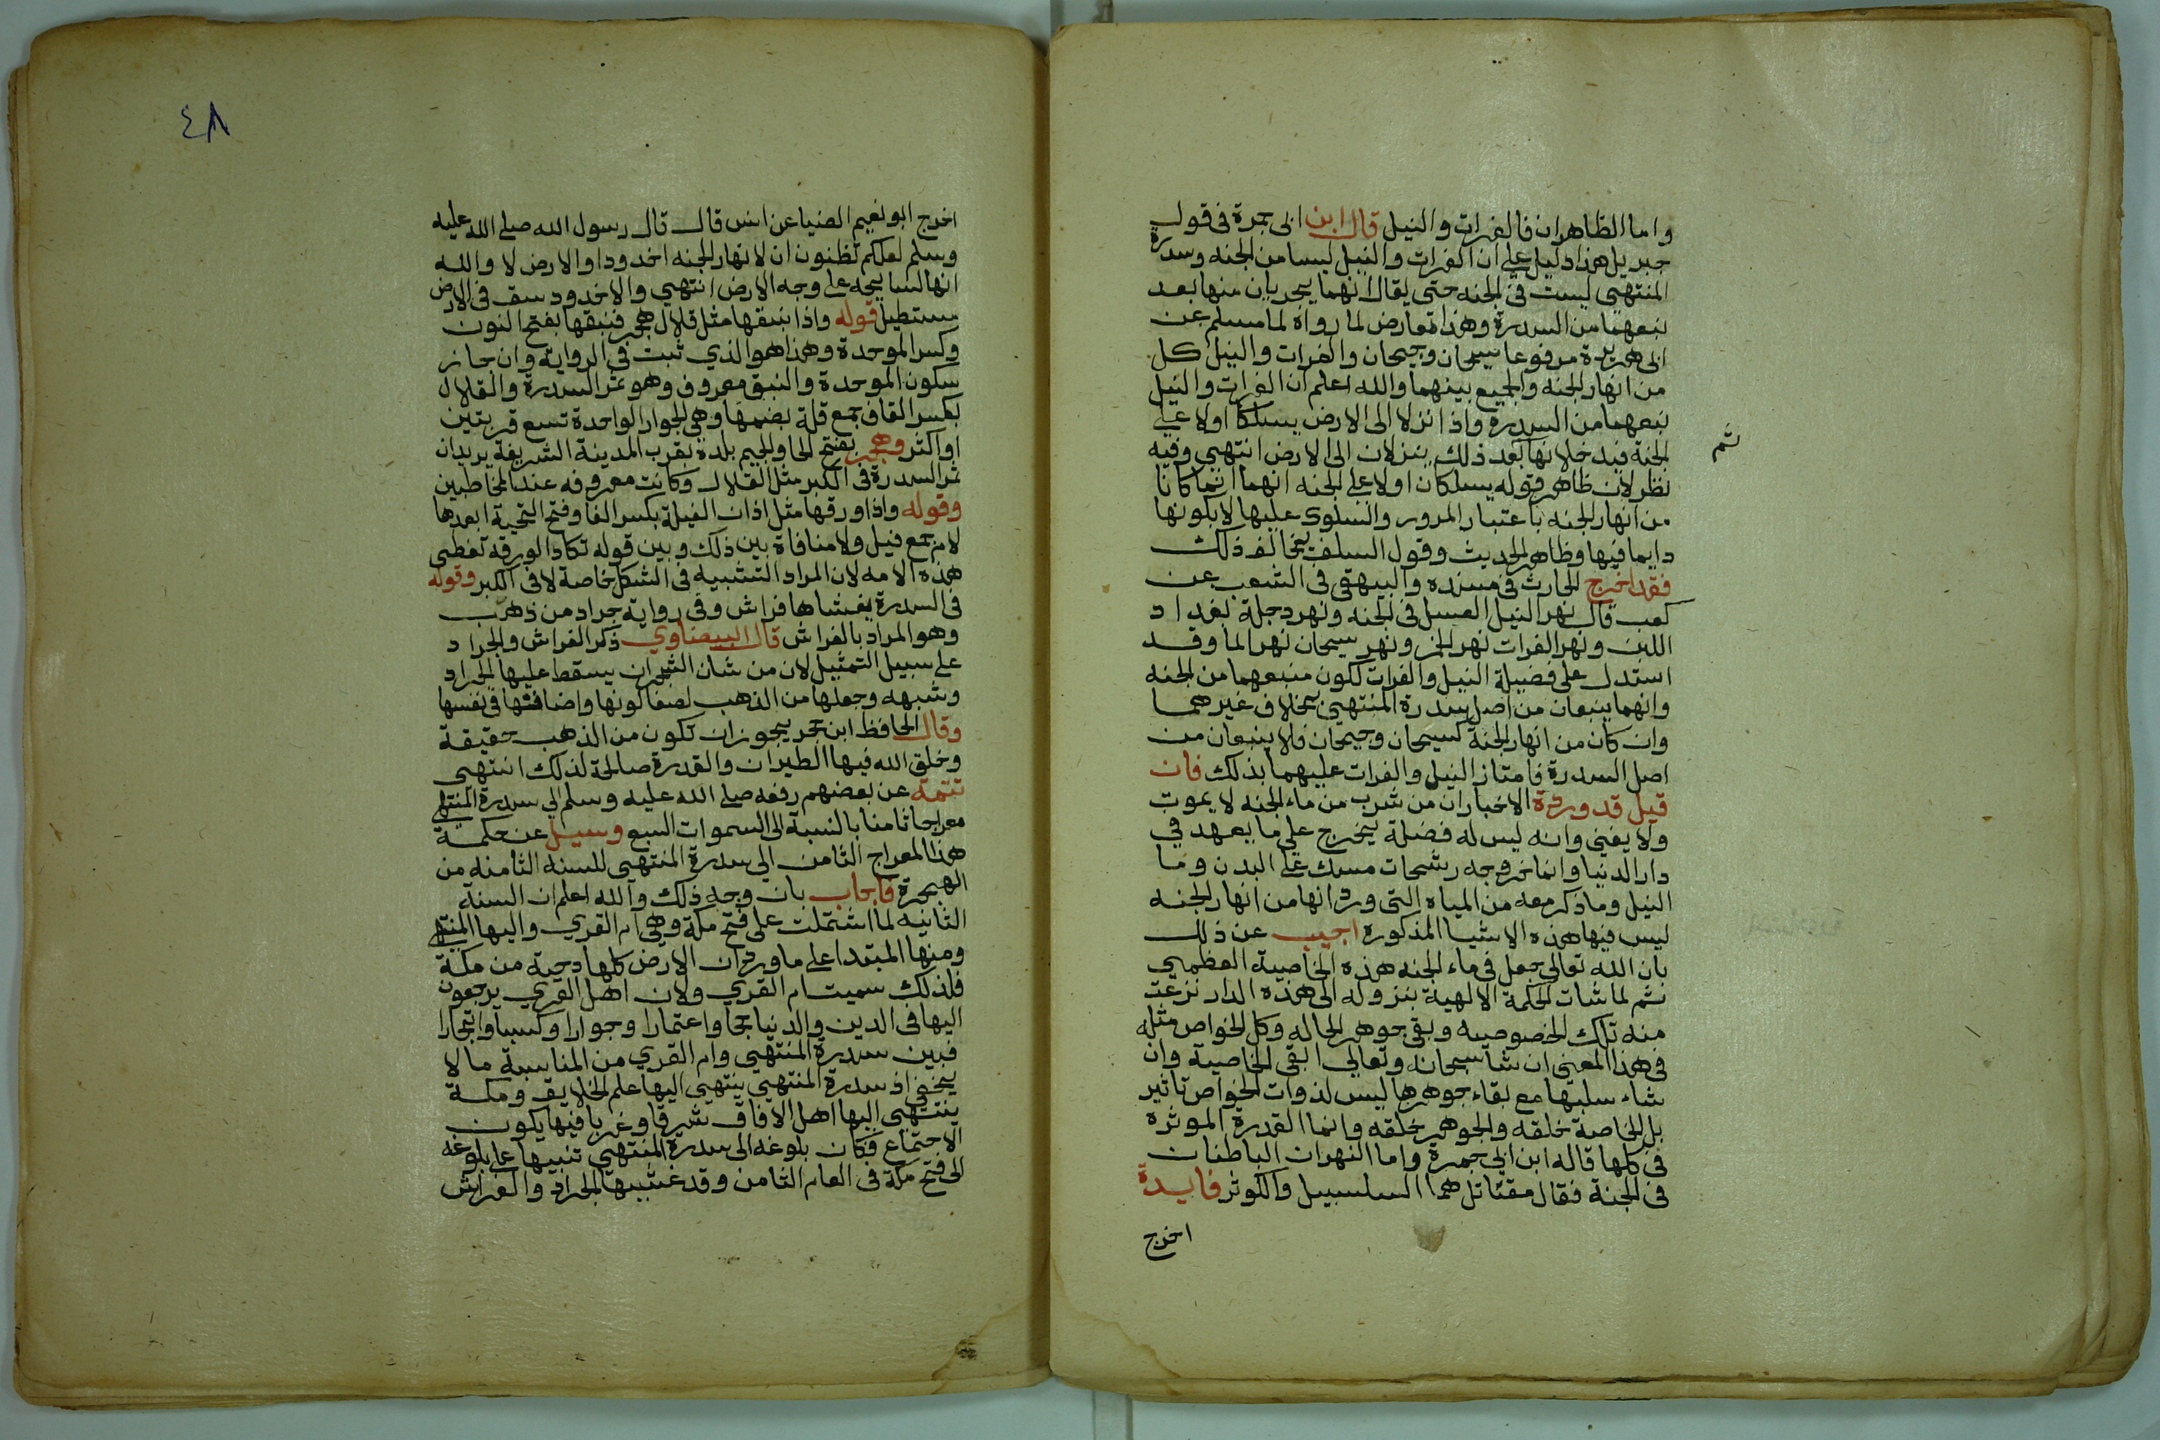 واما الظاهران فالفرات والنيل قال ابن ابى جمرة فى قول
جبريل هذا دليل علي ان الفرات والنيل ليسا من الجنه وسدرة
المنتهى ليست فى الجنه حتى يقال انهما يجريان منها بعد
نبعهما من السدرة وهذا معارض لما رواه لما مسلم عن
ابى هريرة مرفوعا سيحان وجيحان والفرات والنيل كل
من انهار الجنه والجمع بينهما والله اعلم ان الفرات والنيل
نبعهما من السدره واذا نزلا الى الارض يسلكا اولا على
الجنة فيدخلانها بعد ذلك ينزلان الى الارض انتهى وفيه
ثم
نظر لان ظاهر قوله يسلكان اولا على الجنه انهما انما كانا
من انهار الجنه باعتبار المرور والسلوك عليها لا بكونها
دايما فيها وظاهر الحديث وقول السلف يخالف ذلك
فقد اخرج الحارث فى مسنده والبيهقى فى الشعب عن
كعب قال نهر النيل العسل فى الجنه ونهر دجلة بغداد
اللبن ونهر الفرات نهر الخمر ونهر سيحان نهر الما وقد
استدل على فضيلة النيل والفرات لكون منبعهما من الجنه
وانهما ينبعان من اصل سدرة المنتهى بخلاف غيرهما
وان كان من انهار الجنة كسيحان وجيحان فلا ينبعان من
اصل السدرة فامتاز النيل والفرات عليهما بذلك فان
قيل قد وردة الاخبار ان من شرب من ماء الجنه لا يموت
ولا يفنى وانه ليس له فضلة يخرج على ما يعهد في
دار الدنيا وانما خروجه رشحات مسك على البدن وما
النيل وما ذكر معه من المياه التى ورد انها من انهار الجنه
ليس فيها هذه الاشيا المذكوره اجيب عن ذلك
بان الله تعالى جعل فى ماء الجنه هذه الخاصية العظمي
ثم لما شات الحكمة الالهية بنزوله الى هذه الدار نزعت
منه تلك الخصوصيه وبقى جوهر الحاله وكل الخواص مثله
فى هذا المعنى ان شا سبحانه وتعالي ابقى الخاصية وان
شاء سلبها مع بقاء جوهرها ليس لذوات الخواص تاثير
بل الخاصة خلقه والجوهر خلقه وانما القدرة الموثره
فى كلها قاله ابن ابي جمرة واما النهران الباطنان
فى الجنة فقال مقتاتل هما السلسبيل والكوثر فايدة
اخرج
٤٨
اخرج ابو نعيم الضيا عن انس قال قال رسول الله صلى الله عليه
وسلم لعلكم تظنون ان لانهار الجنه اخدودا والارض لا والله
انها لسايحه على وجه الارض انتهي والاخدود سق فى الارض
مستطيل قوله واذا نبقها مثل قلال هجر فنبقها بفتح النون
وكسر الموحدة وهذا هو الذي ثبت فى الرواية وان جاز
سكون الموحدة والنبق معروف وهو ثمر السدرة والقلال
بكسر القاف جمع قلة بضمها وهي الجوار الواحدة تسع قربتين
او اكثر وهجر بفتح الحا والجيم بلدة بقرب المدينة الشريفة يريدان
ثمر السدرة فى الكبر مثل القلال وكانت معروفه عند المخاطبين
وقوله واذا ورقها مثل اذان الفيلة بكسر الفا وفتح التحية ابعدها
لام جمع فيل ولا منافاة بين ذلك وبين قوله تكاد الورقه تغطى
هذه الامه لان المراد التشبيه فى الشكل خاصة لا فى الكبر وقوله
فى السدرة يغشاها فراش وفى رواية جراد من ذهب
وهو المراد بالفراش قال البيضاوي ذكر الفراش والجراد
على سبيل التمثيل لان من شان الشجر ان يسقط عليها الجراد
وشبهه وجعلها من الذهب لصفا لونها واضافتها فى نفسها
وقال الحافظ ابن حجر يجوز ان تكون من الذهب حقيقة
وخلق الله فيها الطيران والقدرة صالحة لذلك انتهى
تتمة عن بعضهم رفعه صلى الله عليه وسلم الي سدرة المنتهى
معراجا ثامنا بالنسبة الى السموات السبع وسيل عن حكمة
هذا المعراج الثامن الي سدرة المنتهى للسنه الثامنه من
الهجرة فاجاب بان وجه ذلك والله اعلم ان السنة
الثانيه لما اشتملت على فتح مكة وهى ام القري واليها المنتهى
ومنها المبتدا على ما ورد ان الارض كلها دحية من مكة
فلذلك سميت ام القري ولان اهل القري يرجعون
اليها فى الدين والدنيا حجا واعتمارا وجوارا وكسبا واتجارا
فبين سدرة المنتهى وام القري من المناسبة ما لا
يخفى اذ سدرة المنتهى ينتهى اليها علم الخلايق ومكة
ينتهى اليها اهل الافاق شرقا وغربا فيها يكون
الاجتماع فكان بلوغه الى سدرة المنتهى تنبيها على بلوغه
الى فتح مكة فى العام الثامن وقد غشيها الجراد والفراش